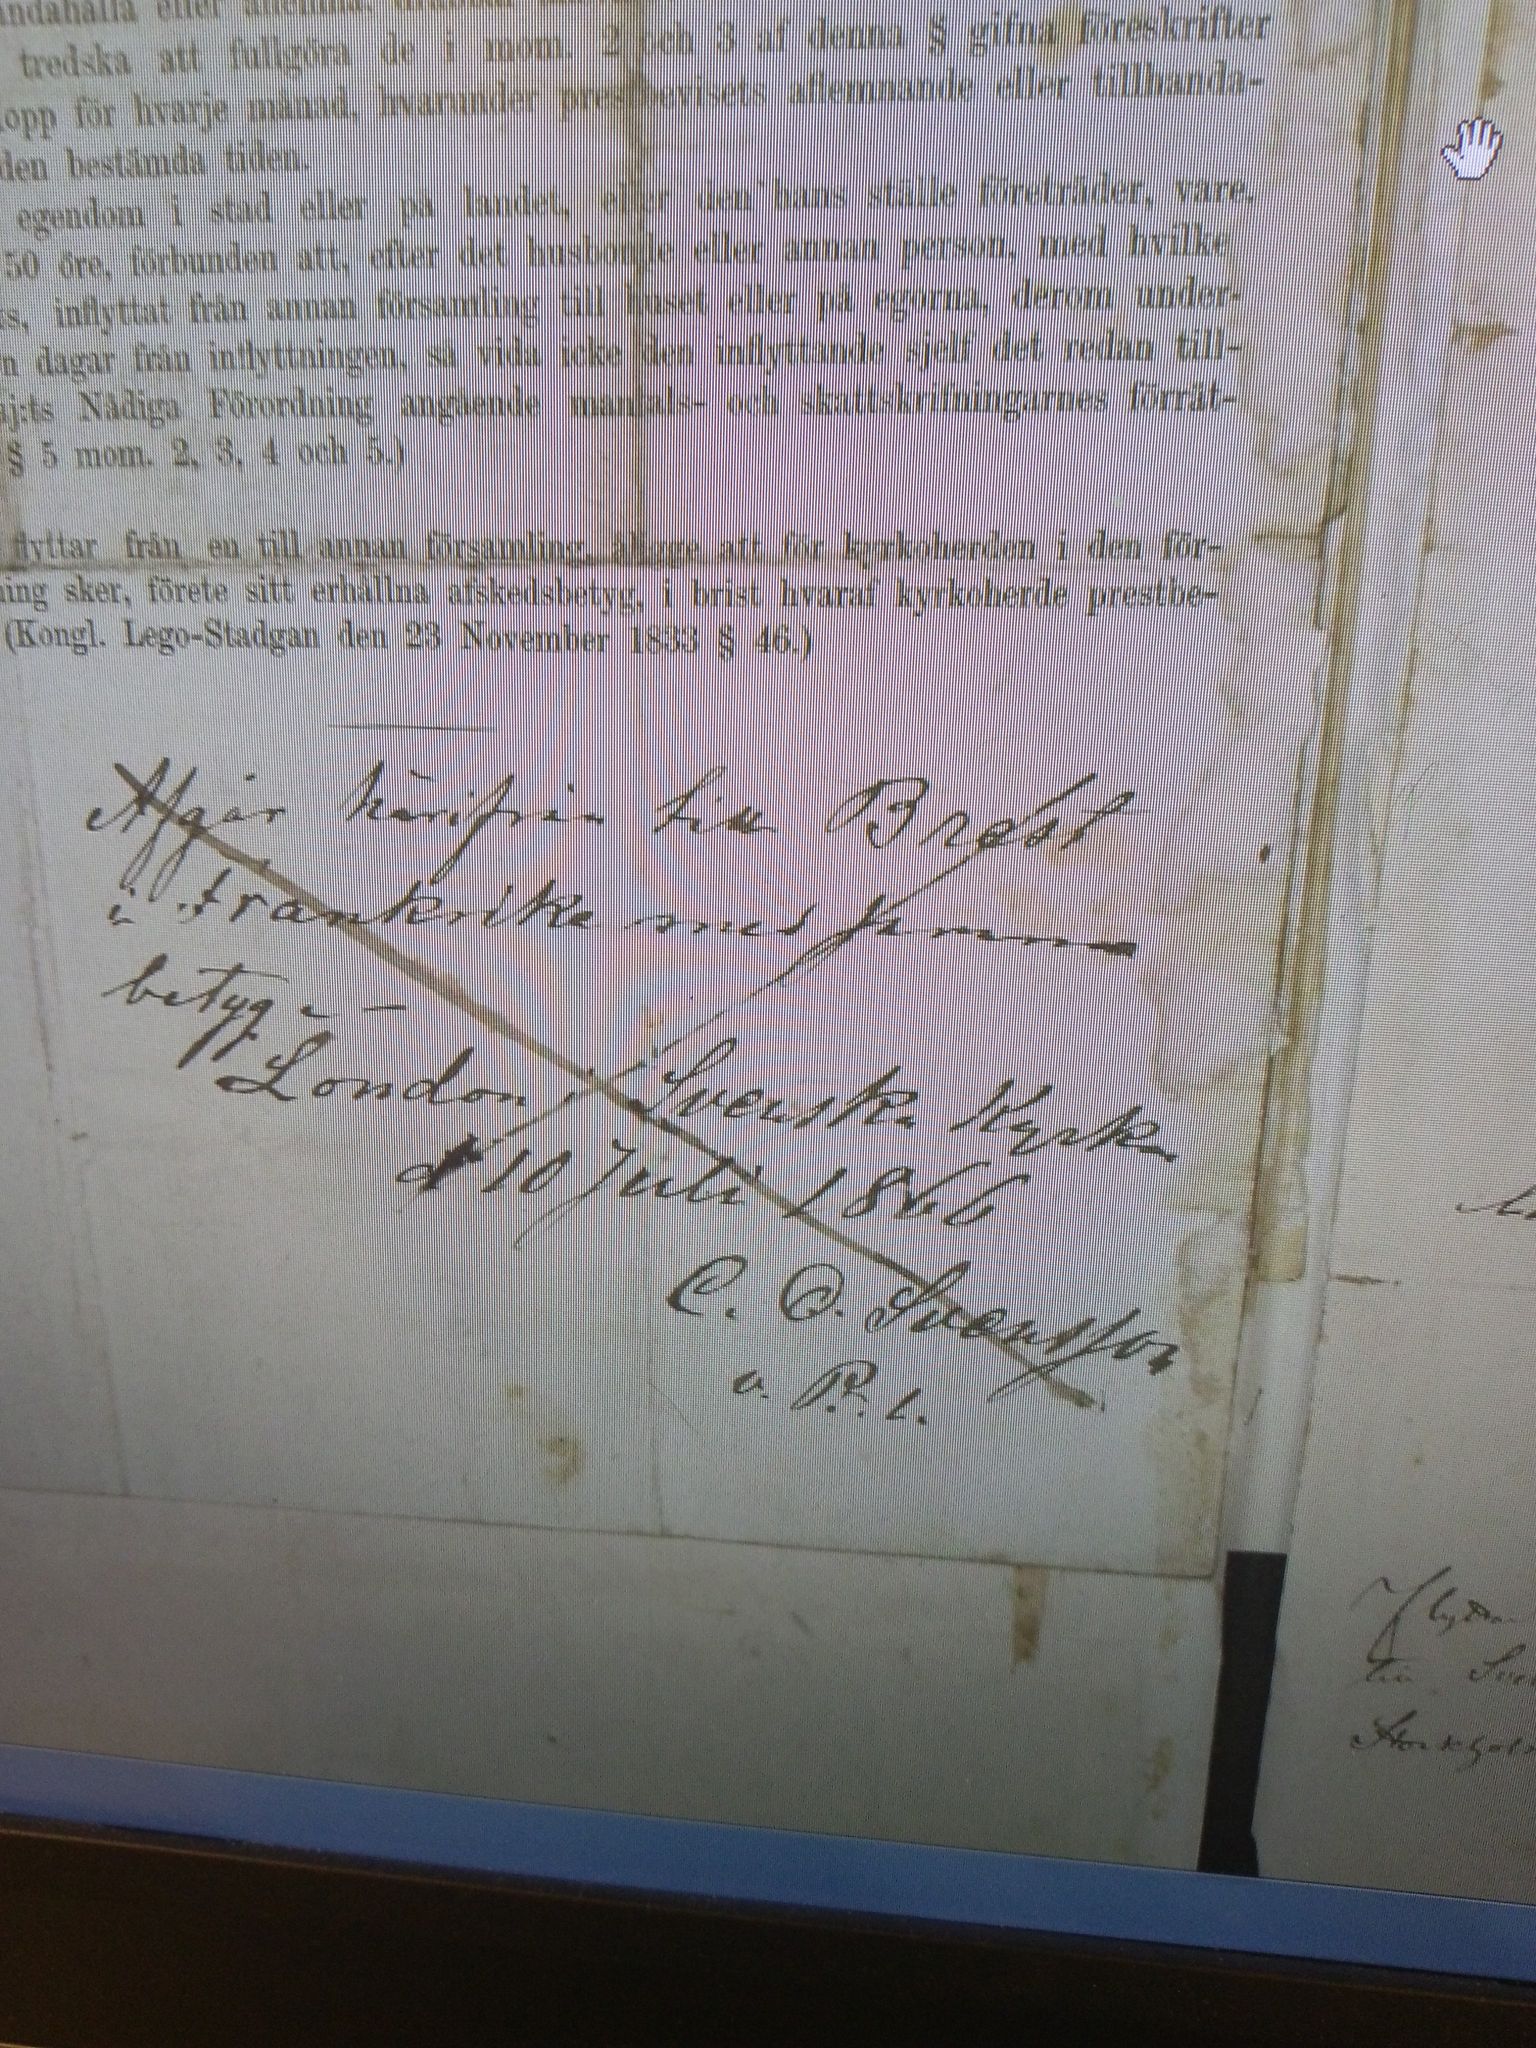 tredska att fullgöra de i mom. 2 och 3 af denna § gifna föreskrifter
lopp för hvarje månad, hvarunder prestbevisets aflemnande eller tillhanda-
den bestämda tiden.
egendom i stad eller på landet, eller den hans ställe företräder, vare,
50 öre, förbunden att, efter det husbonde eller annan person, med hvilke
s, inflyttat från annan församling till huset eller på egorna, derom under-
n dagar från inflyttningen, så vida icke den inflyttande sjelf det redan till-
aj:ts Nådiga Förordning angående mantals- och skattskrifningarnes förrät-
§ 5 mom. 2, 3, 4 och 5.)
flyttar från en till annan församling, åligge att för kyrkoherden i den för-
ning sker, förete sitt erhållna afskedsbetyg, i brist hvaraf kyrkoherde prestbe-
(Kongl. Lego-Stadgan den 23 November 1833 § 46.)
Afgår härifrån till Brest
i Frankrike med
betyg
London, Svenska Kyrka
d 10 Juli 1866
C. O. Svensson
v. P. l.
Stockholm